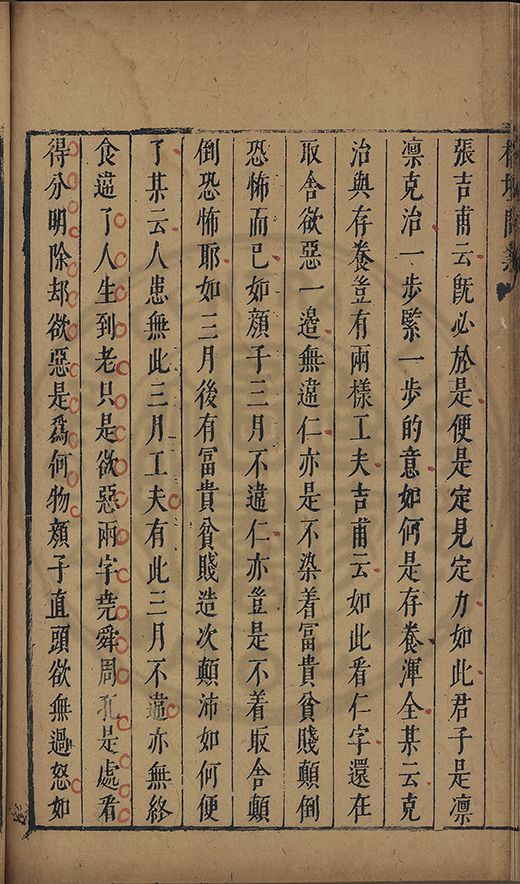 張吉甫云旣必於是便是定見定力如此君子是凛
凛克治一步緊一步的意如何是存養渾全某云克
治與存養豈有兩樣工夫吉甫云如此看仁字還在
取舍欲惡一邉無違仁亦是不染着冨貴貧賤顛倒
恐怖而已如顔子三月不違仁亦豈是不着取舍顛
倒恐怖耶如三月後有冨貴貧賤造次顛沛如何便
了某云人患無此三月工夫有此三月不違亦無終
食違了人生到老只是欲惡兩字堯舜周孔是處看
得分明除却欲惡是爲何物顔子直頭欲無過怒如